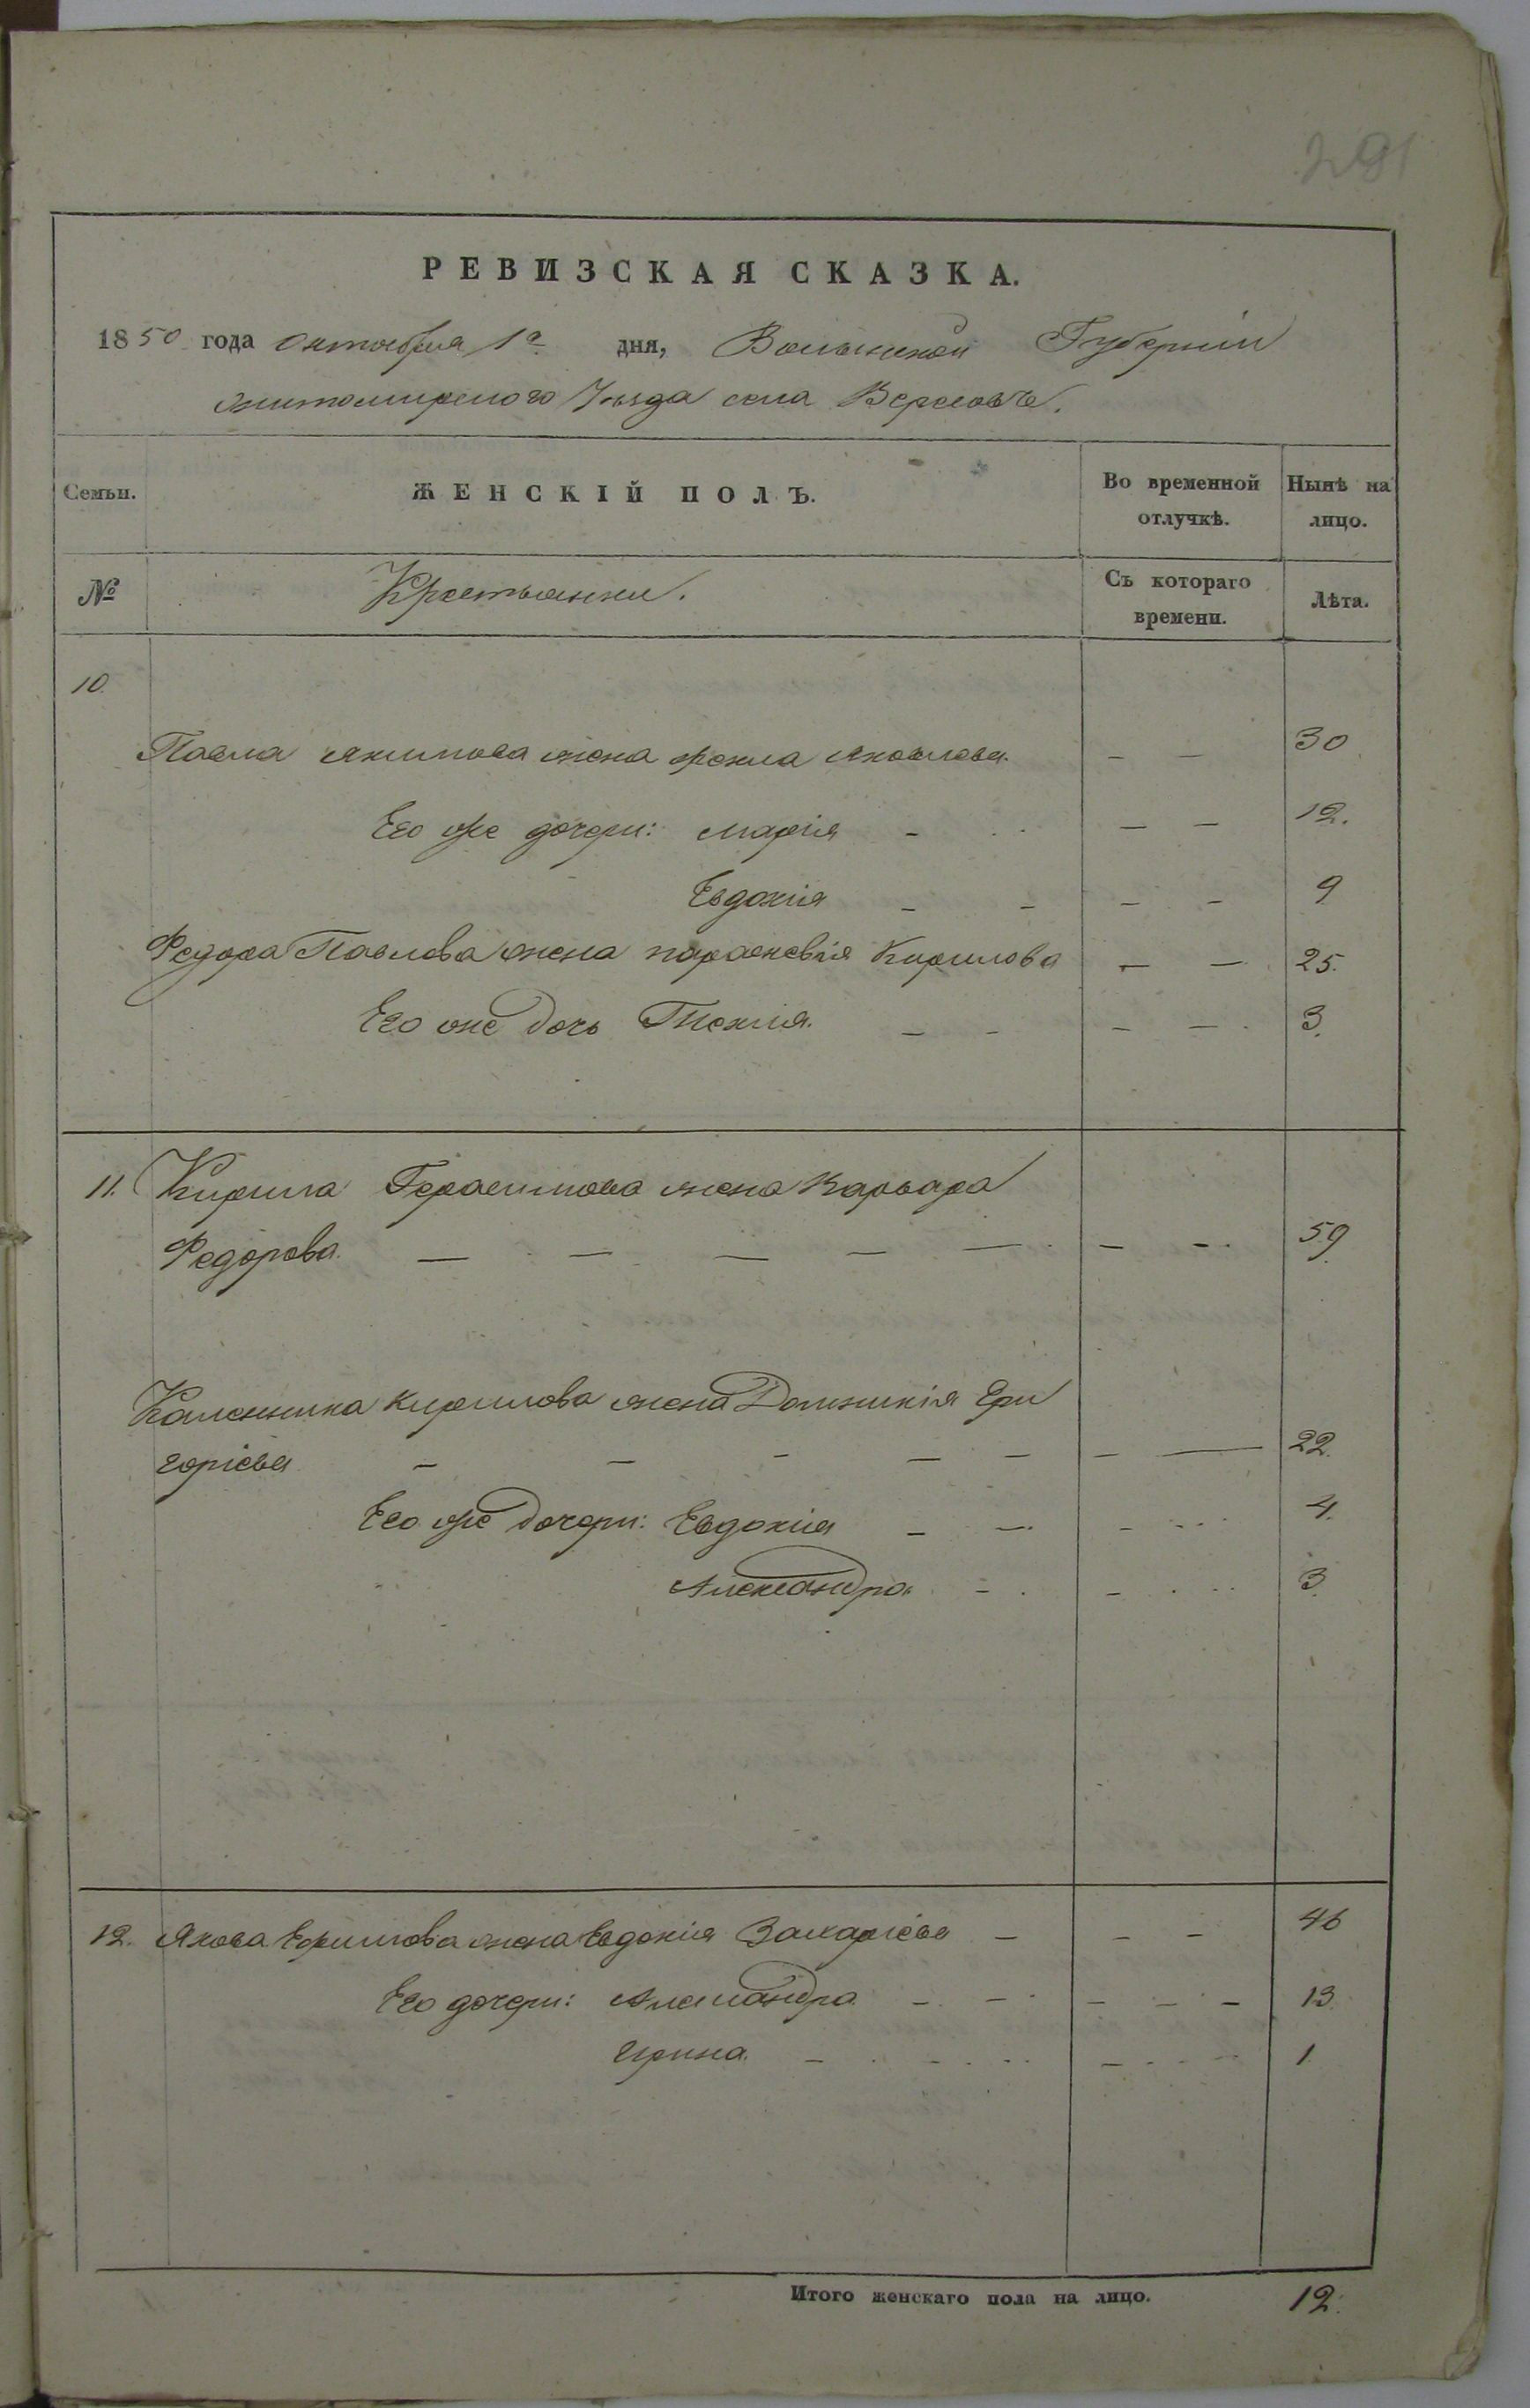 291
РЕВИЗСКАЯ СКАЗКА.
1850 года октября 1го дня, Волынской Губерніи
житомирского Уѣзда села Вересовъ.
Семьи. ЖЕНСКІЙ ПОЛЪ. Во временной отлучкѣ. Нынѣ на лицо.
№ Крестьянки. Съ котораго времени. Лѣта.
10.
Павла Якимова жена Фекла Яковлева. — — 30
Его же дочери: Марія - — — 12.
Евдокія — — — — 9
Федора Павлова жена Параскевія Кирилова — — 25.
Его же дочь Текля. — — — — 3.
11. Кирила Герасимова жена Варвара
Федорова. — — — — — — — 59.
Каленника Кирилова жена Домникія Гри
горіева — — — — — — — 22.
Его же дочери: Евдокія — — — 4.
Александра — — 3.
12. Якова Ефимова жена Евдокія Захаріева — — — 46
Его дочери: Александра — — — — — 13.
Ирина. — — — 1
Итого женскаго пола на лицо. 12.